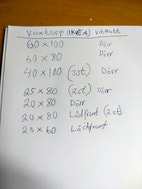 Voxtorp (IKEA) vit Matt
60 x 100 Dörr
60 x 80 Dörr
40 x 100 (3st) Dörr
25 x 80 (2st) Dörr
20 x 80 Dörr
20 x 80 Lådfront (2st)
20 x 60 Lådfront